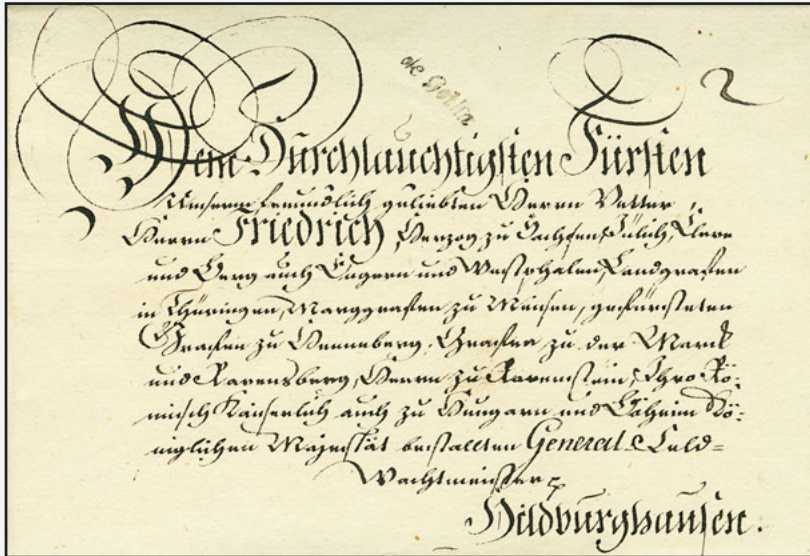 de Gotha
Dem Durchlauchtigsten Fürsten
Unserm freundlich geliebten Herrn Vetter,
Herrn Friedrich, Herzog zu Sachsen, Jülich, Cleve
und Berg auch Engern und Westphalen, Landgrafen
in Thüringen, Marggrafen zu Meissen, gefürsteten
Grafen zu Henneberg, Grafen zu der Marck
und Ravensberg, Herrn zu Ravenstein, Ihro Rö-
misch Kayserlich auch zu Hungarn und Böheim Kö-
niglichen Majestät bestallten General-Feld-
Wachtmeister
Hildburghausen.